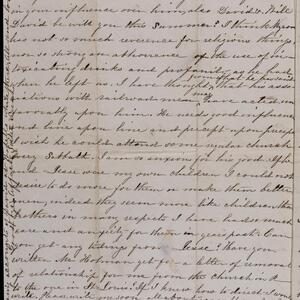 in your influence over him, also David W. Will
David be with you this Summer? I think Myron
has not so much reverence for religious things
nor so strong an abhorrence of the use of in
toxicating drinks and profanity as he had
when he left us. I have thought that his asso
ciations with railroad men, have acted un
favorably upon him. He need good influence
and line upon line and precept upon precept
I wish he could attend some regular church
every Sabbath. I am so anxious for his good. If he
and were my own children I could not
desire to do more for them or make them better
men, indeed they seem more like children than
brothers in many respects I have had so much
care and anxiety for them in years past. Can
you get any tidings from Case? Have you
written Mr Holman yet for a letter of removal
of relationship for me from the Church in
to the one in St. Louis? If I knew how to direct I w
Please write me soon